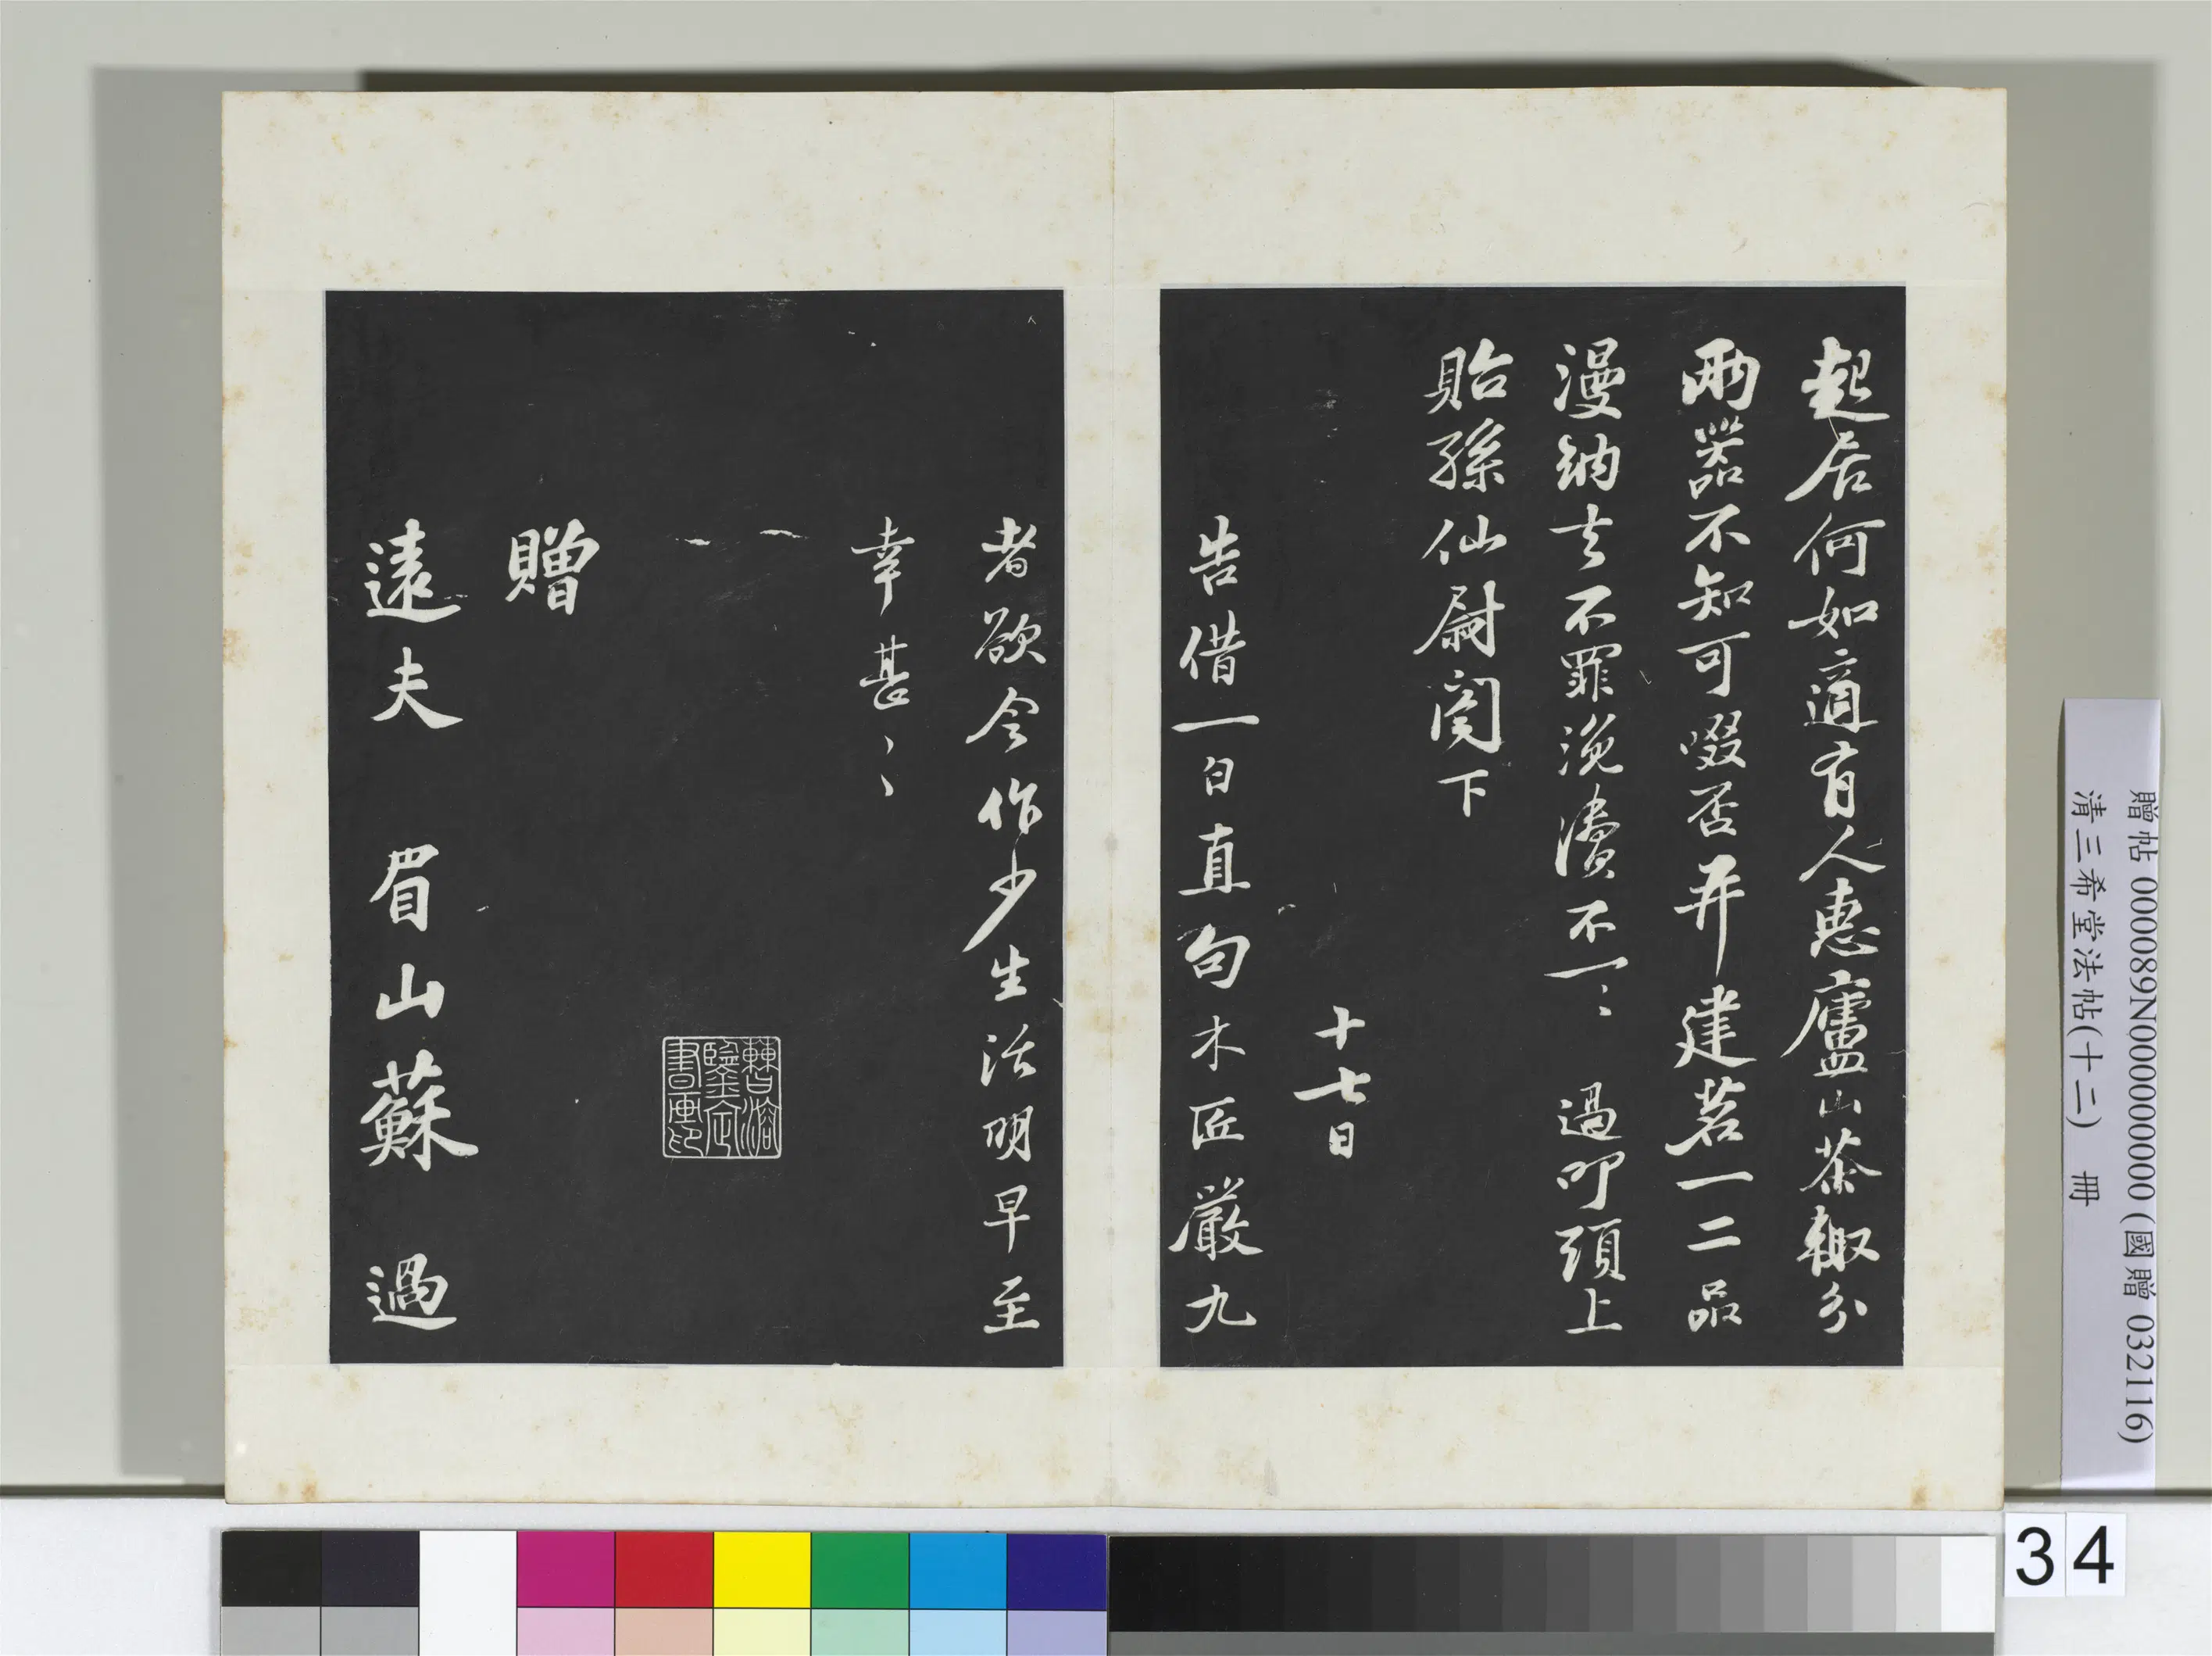 起居何如適有人惠廬山茶輙分
兩器不知可啜否并建茗一二品
漫納去不罪浼瀆不一〻 過叩頭上
貽孫仙尉閤下
十七日
告借一白直句木匠嚴九
者欲令作少生活明早至
幸甚〻〻
贈
遠夫 眉山蘇過
贈帖 000089N000000000 (國贈 032116)
清三希堂法帖(十二) 冊
34